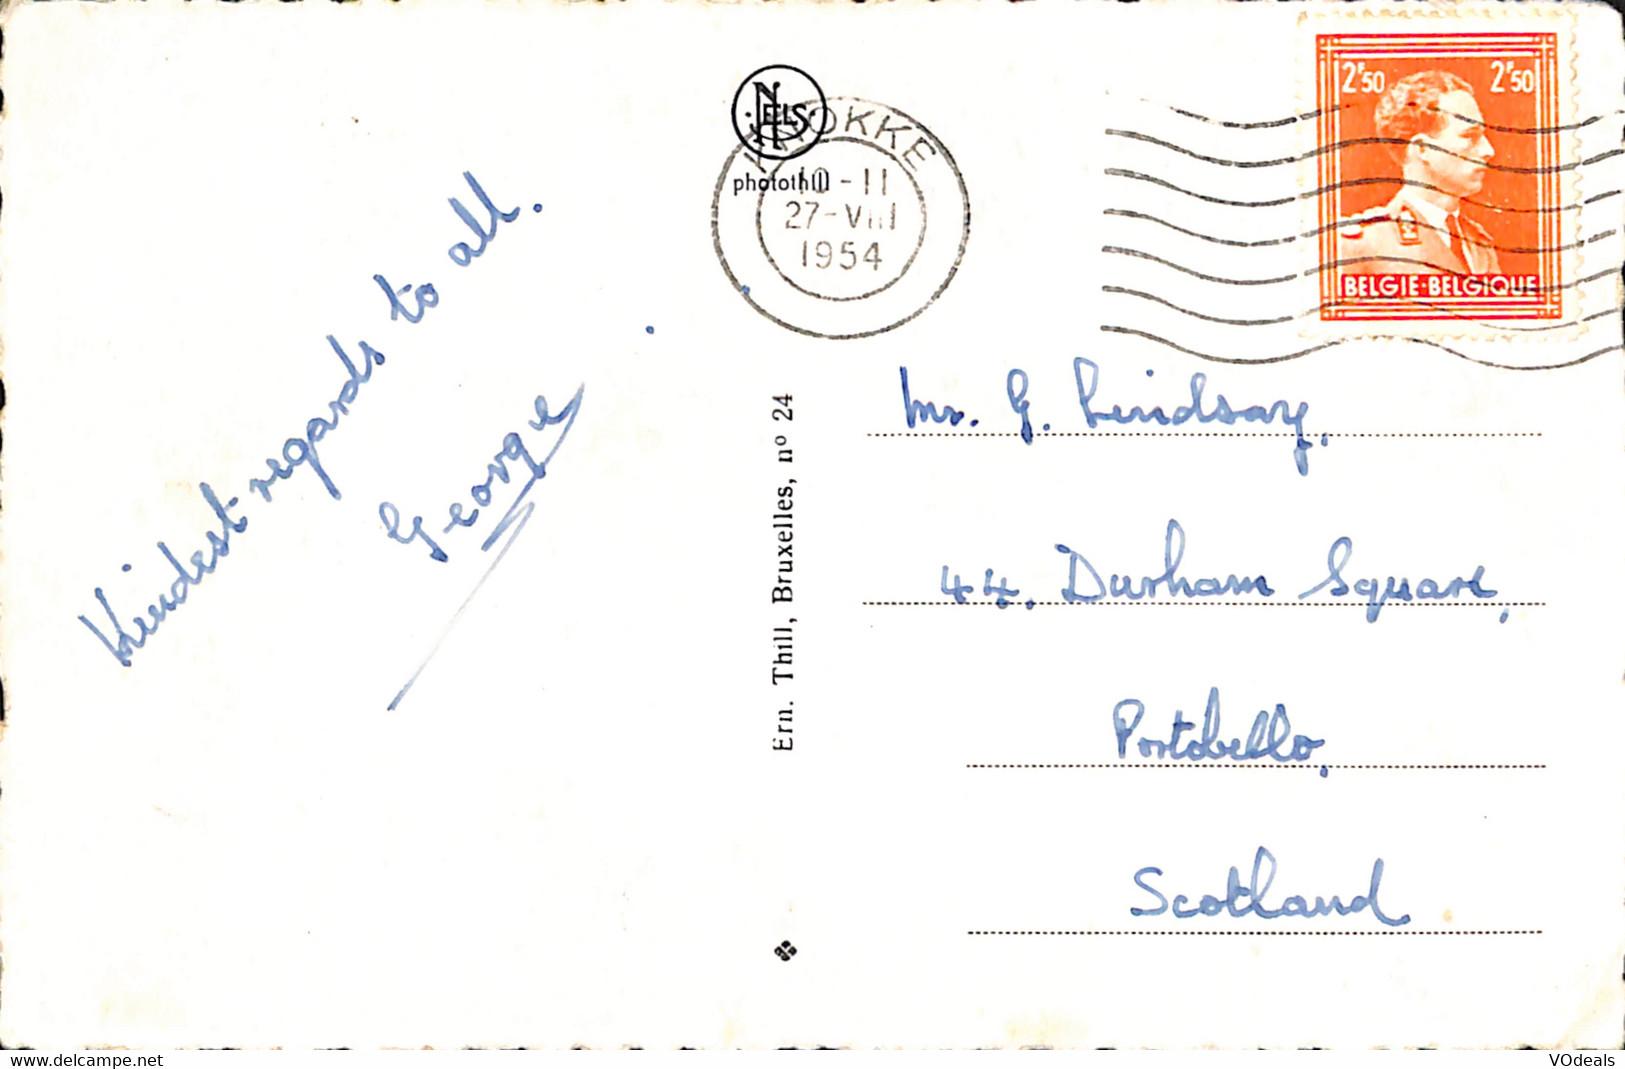 Kindest regards to all.
George
NELS
photothill
KNOKKE
10-11
27-VIII
1954
2F50 2F50
BELGIE·BELGIQUE
Ern. Thill, Bruxelles, nº 24
Mr. G. Lindsay.
44. Durham Square,
Portobello,
Scotland
www.delcampe.net
VOdeals